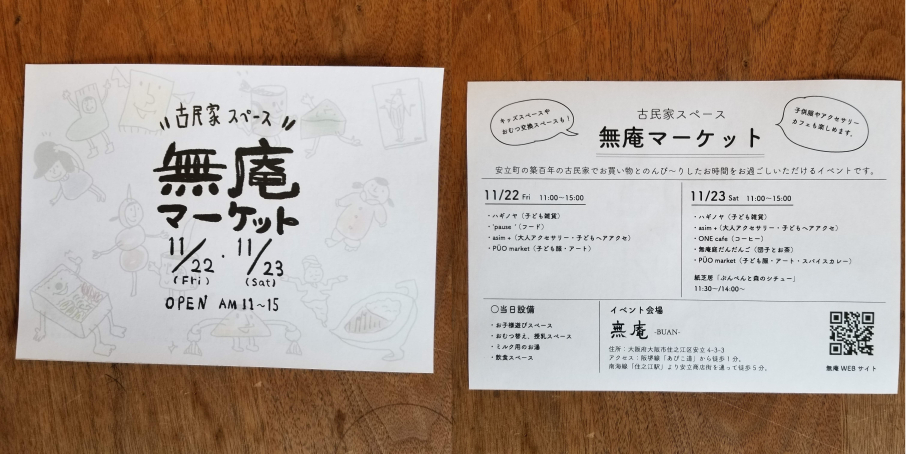 古民家 スペース
無庵
マーケット
11/22 (Fri) ・ 11/23 (Sat)
OPEN AM 11~15
キッズスペースや
おむつ交換スペースも！
古民家スペース
無庵マーケット
子供服やアクセサリー
カフェも楽しめます。
安立町の築百年の古民家でお買い物とのんび〜りしたお時間をお過ごしいただけるイベントです。
11/22 Fri 11:00〜15:00
・ハギノヤ（子ども雑貨）
・'pause '（フード）
・asim +（大人アクセサリー・子どもヘアアクセ）
・PÜO market（子ども服・アート）
11/23 Sat 11:00〜15:00
・ハギノヤ（子ども雑貨）
・asim +（大人アクセサリー・子どもヘアアクセ）
・ONE cafe（コーヒー）
・無庵庭だんだんご（団子とお茶）
・PÜO market（子ども服・アート・スパイスカレー）
紙芝居「ぷんぺんと森のシチュー」
11:30〜/14:00〜
〇当日設備
・お子様遊びスペース
・おむつ替え、授乳スペース
・ミルク用のお湯
・飲食スペース
イベント会場
無庵 -BUAN-
住所：大阪府大阪市住之江区安立 4-3-3
アクセス：阪堺線「あびこ道」から徒歩 1 分。
南海線「住之江駅」より安立商店街を通って徒歩 5 分。
無庵 WEB サイト